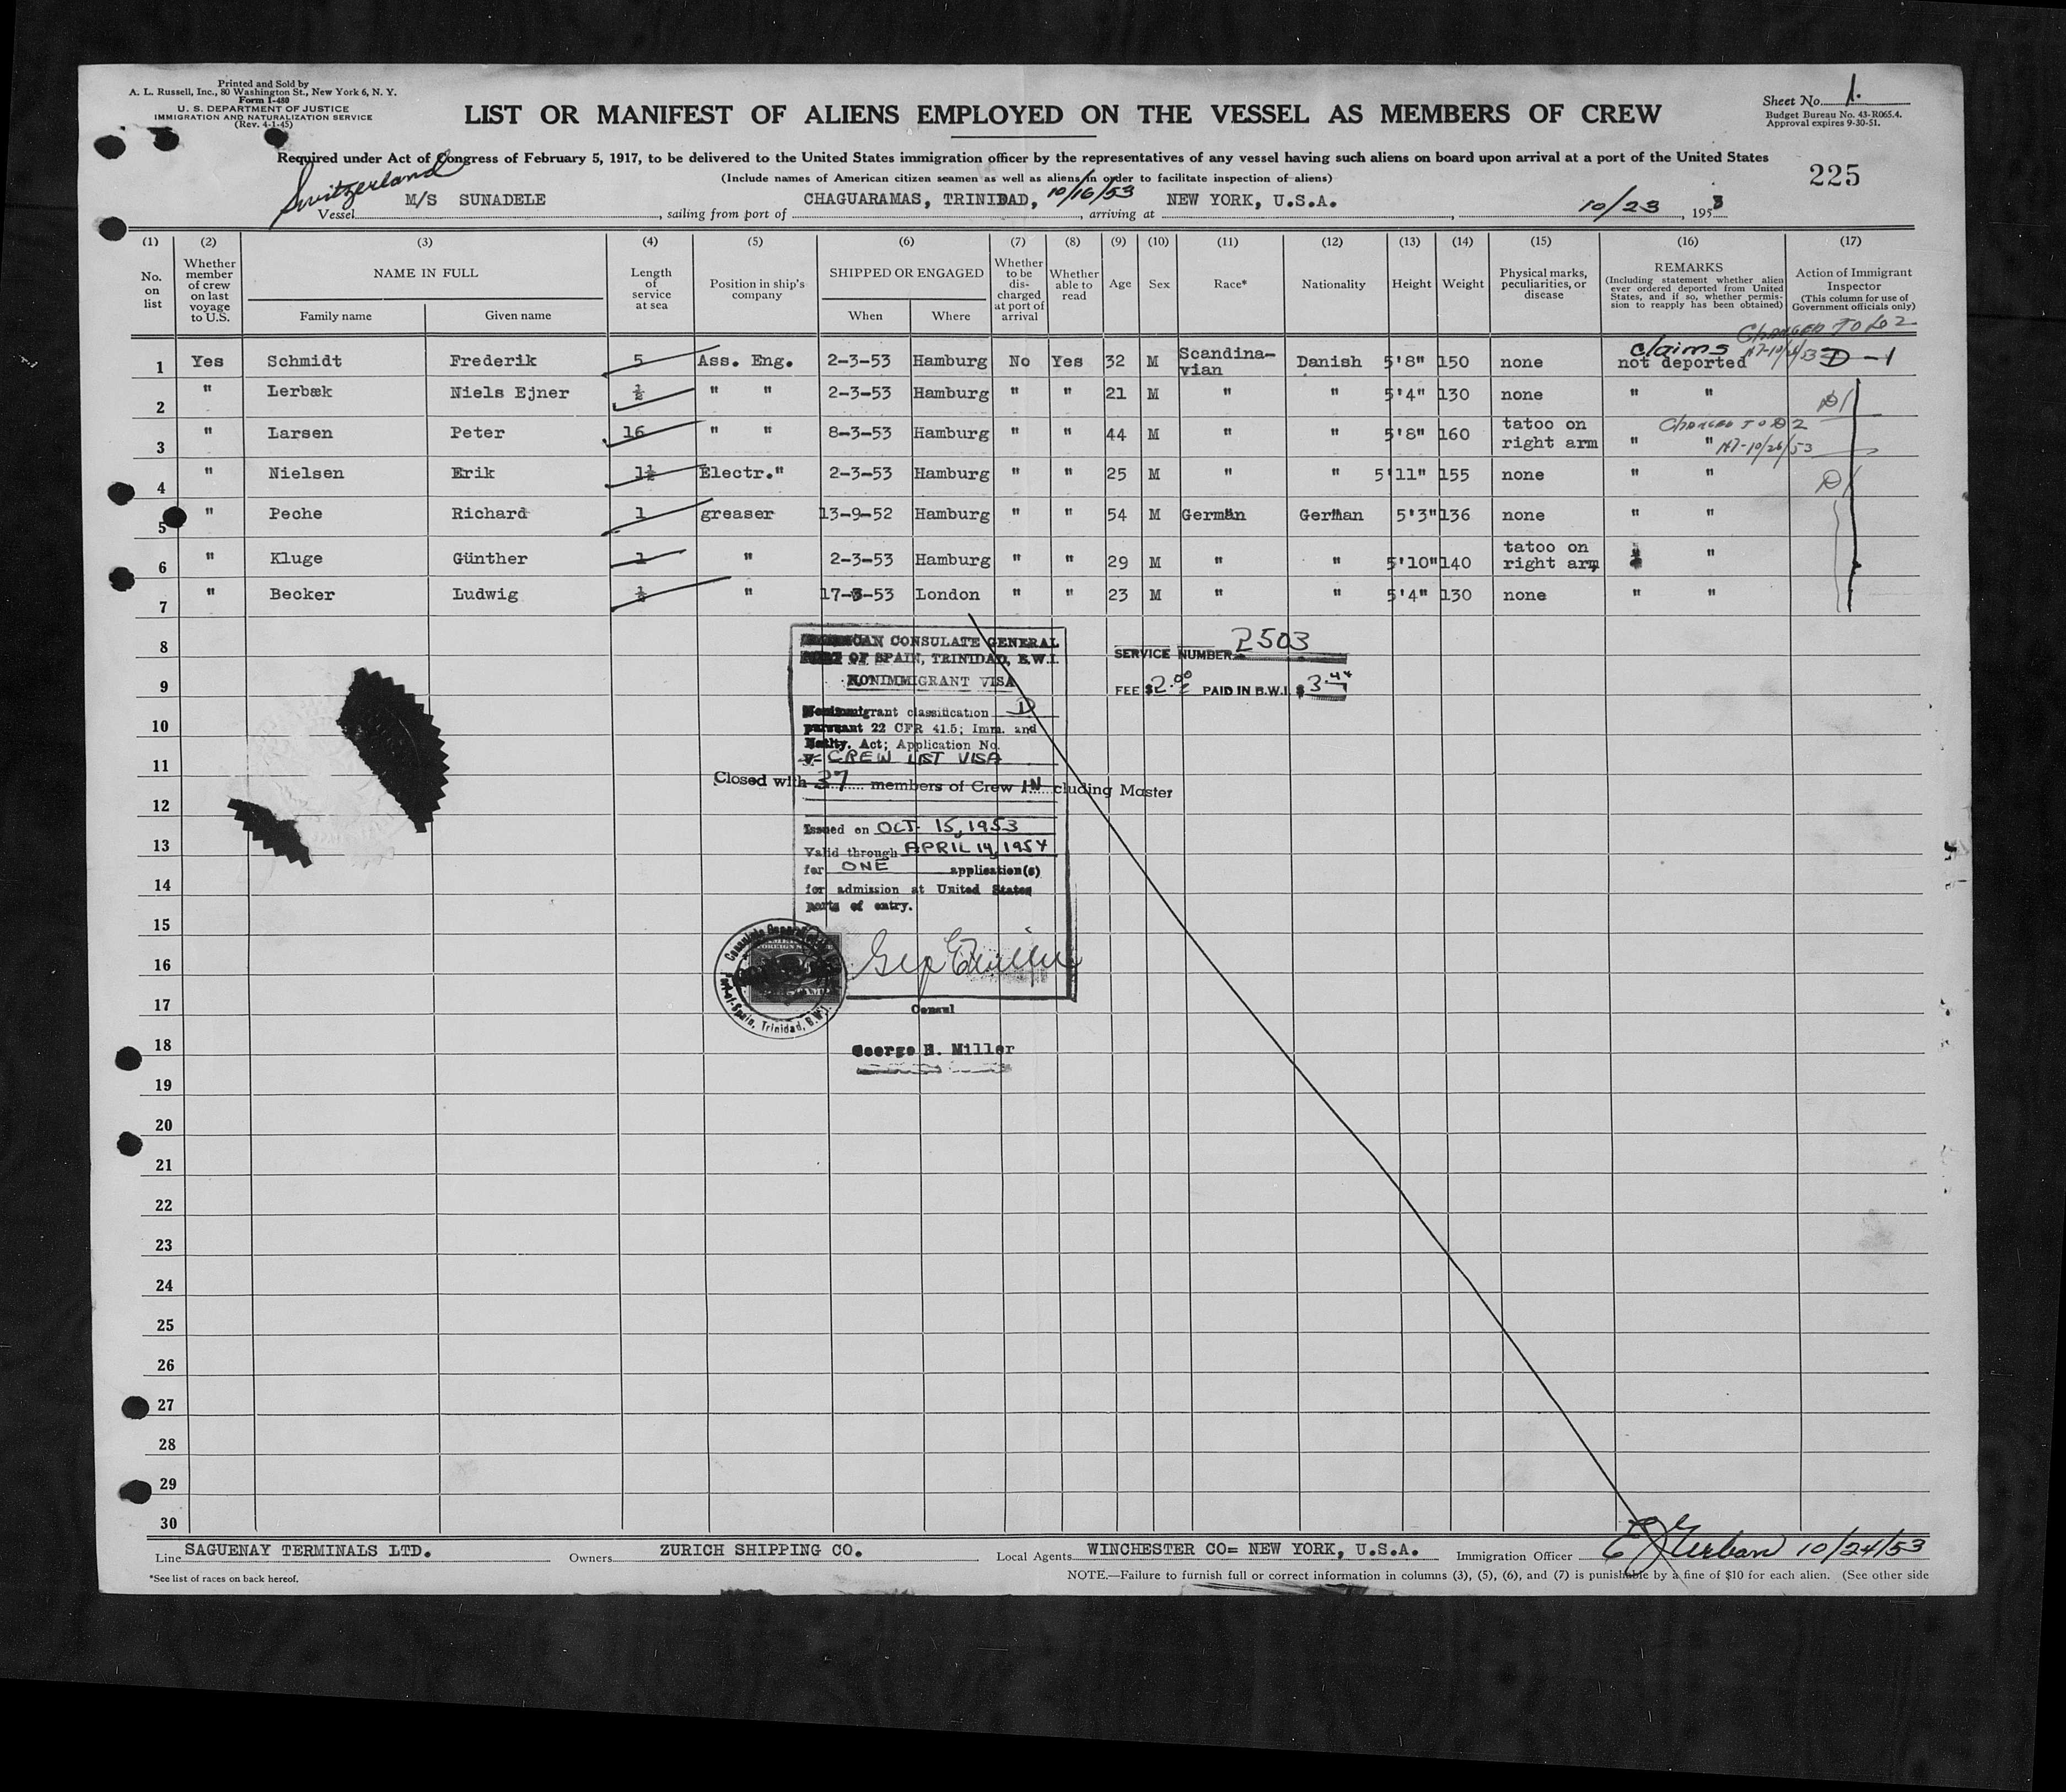 Printed and Sold by
A. L. Russell, Inc., 80 Washington St., New York 6, N. Y.
Form I-480
U. S. DEPARTMENT OF JUSTICE
IMMIGRATION AND NATURALIZATION SERVICE
(Rev. 4-1-45)
LIST OR MANIFEST OF ALIENS EMPLOYED ON THE VESSEL AS MEMBERS OF CREW
Sheet No. 1.
Budget Bureau No. 43-R065.4.
Approval expires 9-30-51.
Required under Act of Congress of February 5, 1917, to be delivered to the United States immigration officer by the representatives of any vessel having such aliens on board upon arrival at a port of the United States
(Include names of American citizen seamen as well as aliens in order to facilitate inspection of aliens)
225
Switzerland
Vessel M/S SUNADELE, sailing from port of CHAGUARAMAS, TRINIDAD, 10/16/53, arriving at NEW YORK, U.S.A., 10/23, 1953
(1) (2) (3) (4) (5) (6) (7) (8) (9) (10) (11) (12) (13) (14) (15) (16) (17)
No. on list
Whether member of crew on last voyage to U.S.
NAME IN FULL
Family name
Given name
Length of service at sea
Position in ship's company
SHIPPED OR ENGAGED
When
Where
Whether to be discharged at port of arrival
Whether able to read
Age
Sex
Race*
Nationality
Height
Weight
Physical marks, peculiarities, or disease
REMARKS
(Including statement whether alien ever ordered deported from United States, and if so, whether permission to reapply has been obtained)
Action of Immigrant Inspector
(This column for use of Government officials only)
CHANGED TO D2
1 Yes Schmidt Frederik 5 Ass. Eng. 2-3-53 Hamburg No Yes 32 M Scandinavian Danish 5'8" 150 none claims not deported 10/26/53 D-1
2 " Lerbæk Niels Ejner ½ " " 2-3-53 Hamburg " " 21 M " " 5'4" 130 none " " D1
3 " Larsen Peter 16 " " 8-3-53 Hamburg " " 44 M " " 5'8" 160 tatoo on right arm " " CHANGED TO D2 10/26/53
4 " Nielsen Erik 1½ Electr." 2-3-53 Hamburg " " 25 M " " 5'11" 155 none " " D1
5 " Peche Richard 1 greaser 13-9-52 Hamburg " " 54 M German German 5'3" 136 none " "
6 " Kluge Günther 1 " 2-3-53 Hamburg " " 29 M " " 5'10" 140 tatoo on right arm " "
7 " Becker Ludwig ½ " 17-3-53 London " " 23 M " " 5'4" 130 none " "
8
9
10
11
12
13
14
15
16
17
18
19
20
21
22
23
24
25
26
27
28
29
30
AMERICAN CONSULATE GENERAL
PORT OF SPAIN, TRINIDAD, B.W.I.
NONIMMIGRANT VISA
Nonimmigrant classification D
pursuant 22 CFR 41.5; Imm. and
Natlty. Act; Application No.
V- CREW LIST VISA
Closed with 37 members of Crew INcluding Master
Issued on OCT. 15, 1953
Valid through APRIL 14, 1954
for ONE application(s)
for admission at United States
ports of entry.
SERVICE NUMBER 2503
FEE $2.00 PAID IN B.W.I. $3.44
Consulate General
Port-of-Spain, Trinidad, B.W.I.
Consul
George E. Miller
Line SAGUENAY TERMINALS LTD. Owners ZURICH SHIPPING CO. Local Agents WINCHESTER CO= NEW YORK, U.S.A. Immigration Officer 10/24/53
*See list of races on back hereof.
NOTE.—Failure to furnish full or correct information in columns (3), (5), (6), and (7) is punishable by a fine of $10 for each alien. (See other side